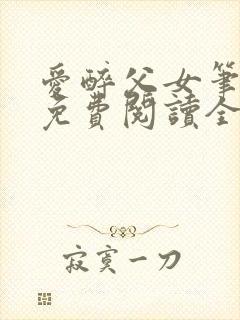 愛醉父女筆
免費閱讀全
寂寞一刀